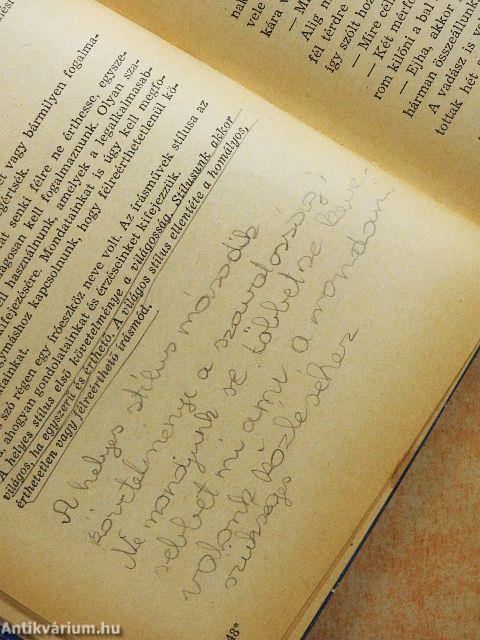 et vagy bármilyen fogalma-
gértsék.
at, senki félre ne érthesse, egysze-
lágosan kell fogalmaznunk. Olyan sza-
ell használnunk, amelyek a legalkalmasab-
kifejezésére. Mondatainkat is úgy kell megfo-
olymáshoz kapcsolnunk, hogy félreérthetetlenül kö-
atainkat.
s szó régen egy íróeszköz neve volt. Az írásművek stílusa az
a, ahogyan gondolatainkat és érzéseinket kifejezzük.
A helyes stílus első követelménye a világosság. Stílusunk akkor
világos, ha egyszerű és érthető. A világos stílus ellentéte a homályos,
érthetetlen vagy félreérthető írásmód.
A helyes stílus második
követelménye a szavatosság,
Ne mondjunk se többet se keve-
sebbet mi amu a mondani
valónk közléséhez
szükséges
48*
nak
vele
kára v
— Alig n
fél térdre
így szólt hoz
— Mire cél
— Két mérfö
rom kilőni a bal
— Ejha, akkor
hárman összeállunk
A vadász is v
tottak hét s
Antikvárium.hu